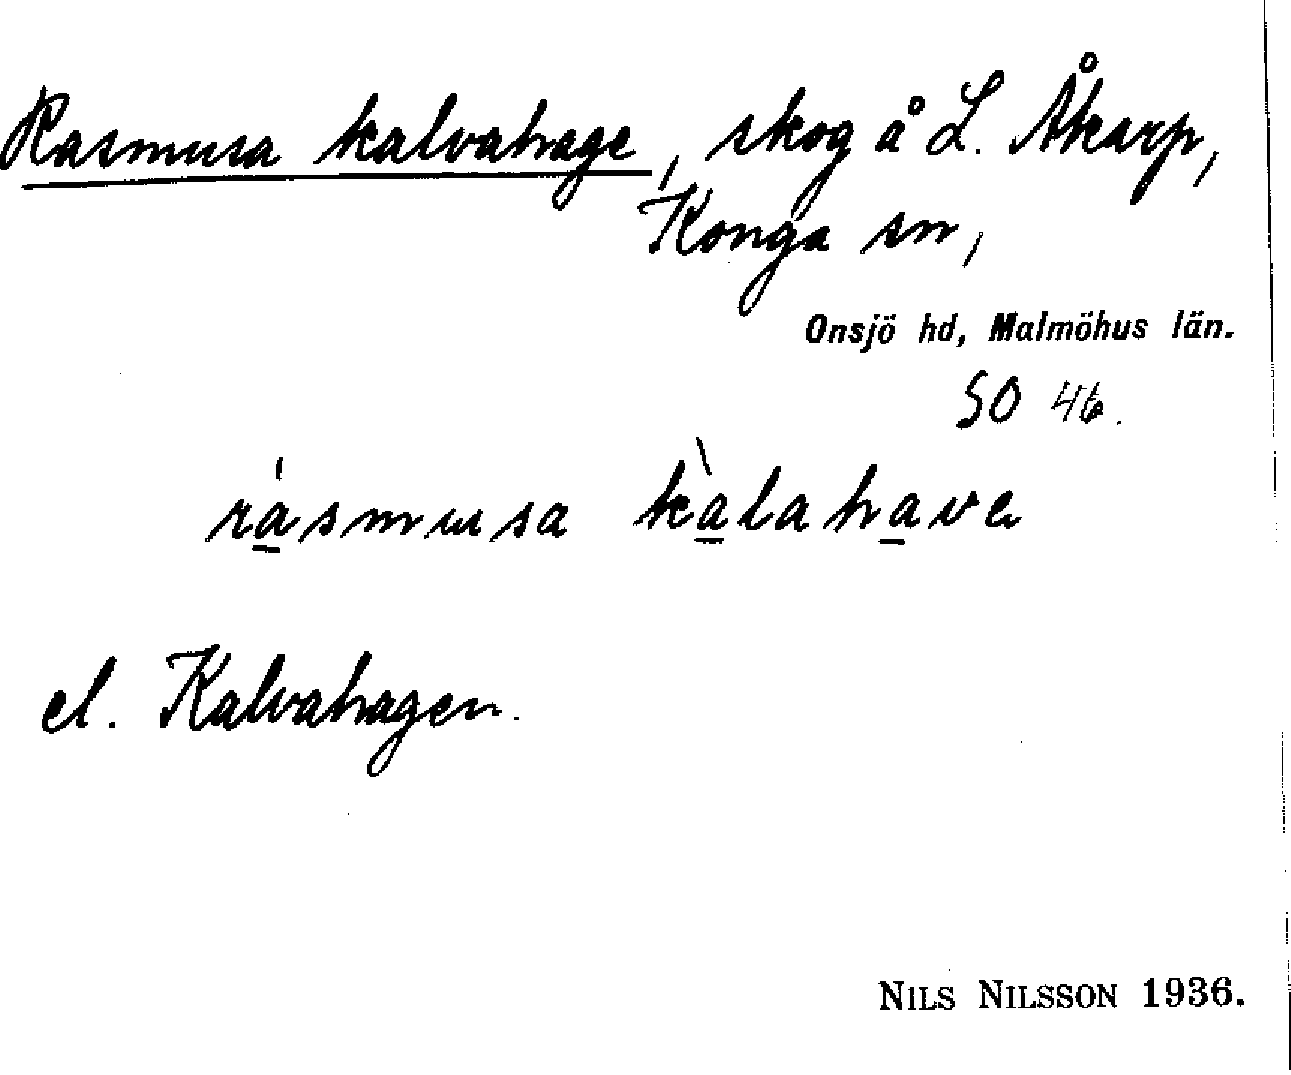 Rasmusa kalvahage, skog å L. Åkarp,
Konga sn,
Onsjö hd, Malmöhus län.
SO 46.
ràsmusa kàlahave
el. Kalvahagen.
NILS NILSSON 1936.